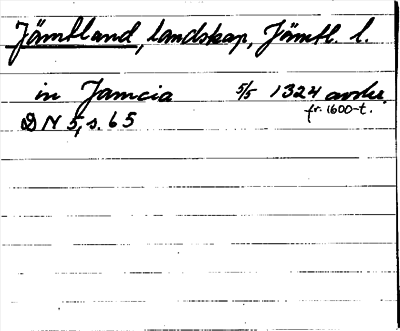 Jämtland, landskap, Jämtl. l.
in Jamcia 5/5 1324 avskr.
fr. 1600-t.
DN 5, s. 65